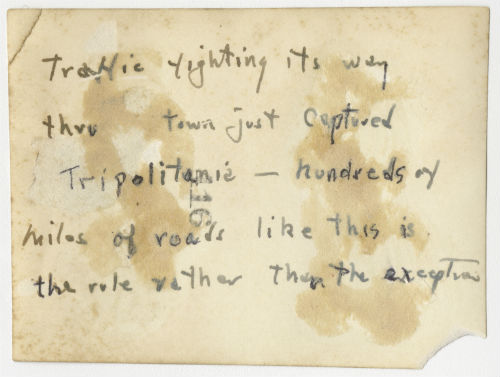 Traffic fighting its way
thru town just captured
Tripolitanie — hundreds of
miles of roads like this is
the rule rather than the exception
116